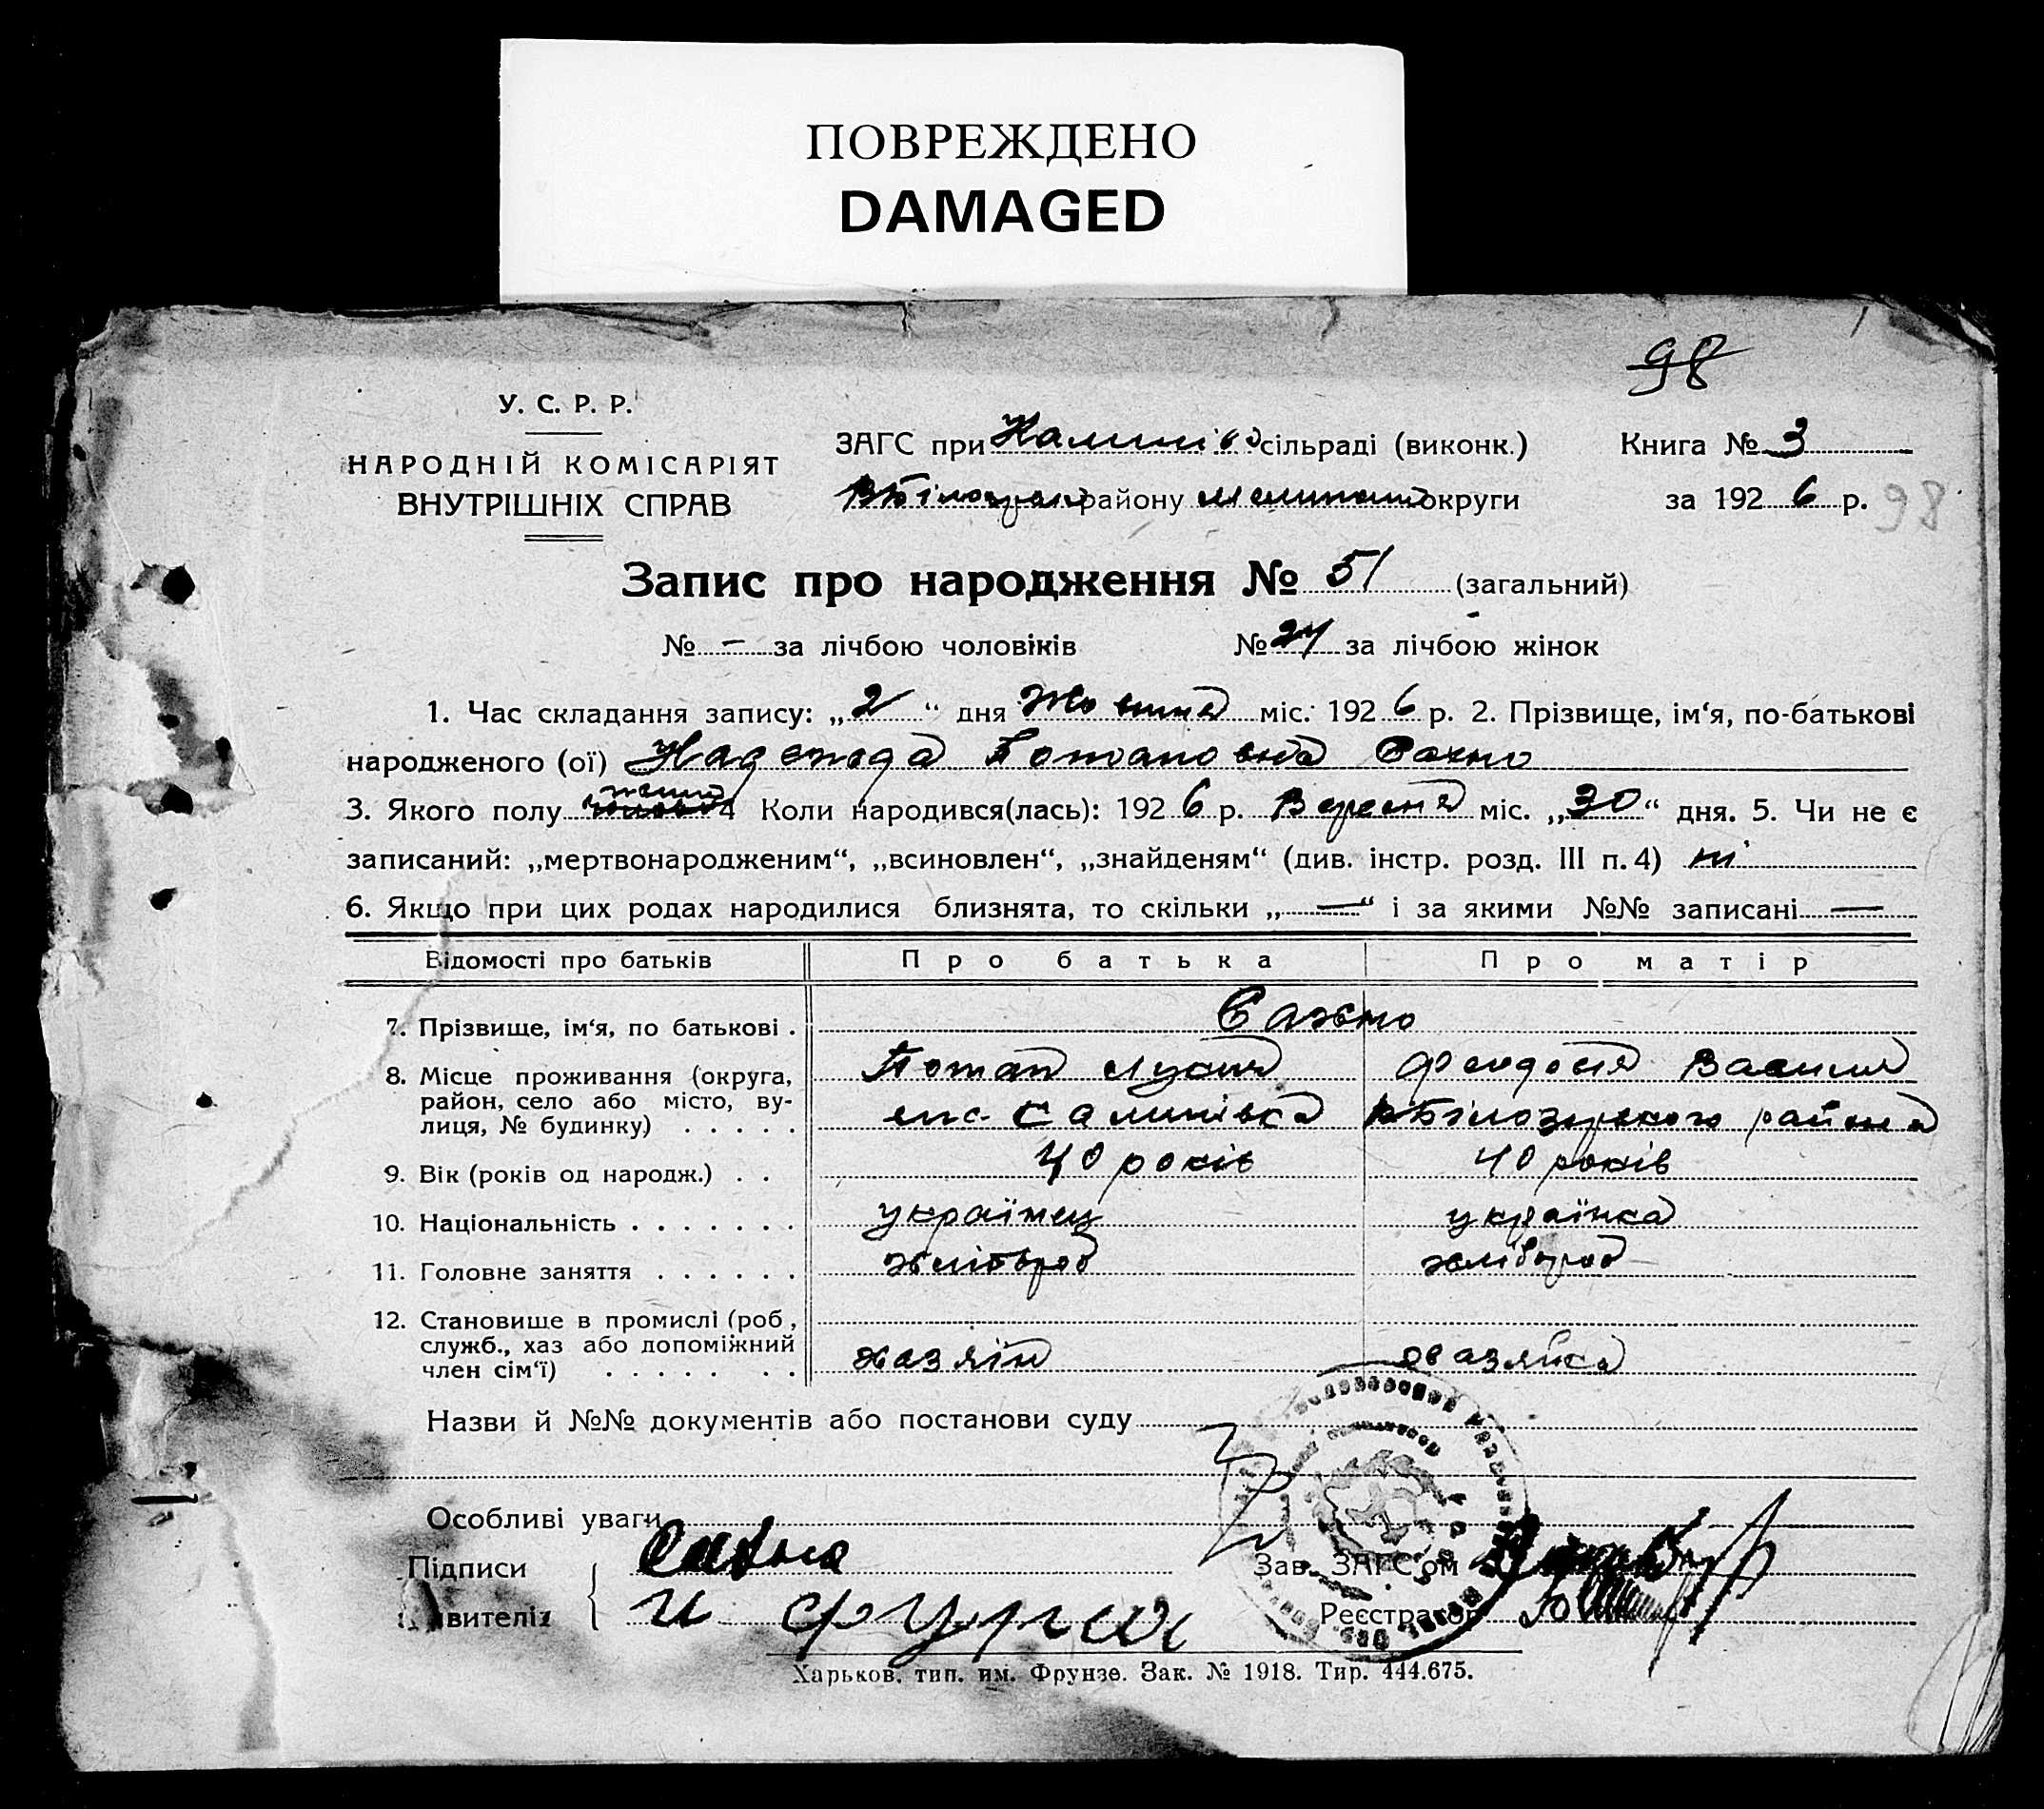 ПОВРЕЖДЕНО
DAMAGED
98
У. С. Р. Р.
НАРОДНІЙ КОМІСАРІЯТ
ВНУТРІШНІХ СПРАВ
ЗАГС при сільраді (виконк.)
району округи
Книга № 3
за 1926 р. 98
Запис про народження № 51 (загальний)
№ — за лічбою чоловіків № 24 за лічбою жінок
1. Час складання запису: „2“ дня Жовтня міс. 1926 р. 2. Прізвище, ім‘я, по-батькові
народженого (ої) Надежда Потаповна Сахно
3. Якого полу 4 Коли народився(лась): 1926 р. Вересня міс. „30“ дня. 5. Чи не є
записаний: „мертвонародженим“, „всиновлен“, „знайденям“ (див. інстр. розд. III п. 4) ні
6. Якщо при цих родах народилися близнята, то скільки „—“ і за якими №№ записані —
Відомості про батьків Про батька Про матір
7. Прізвище, ім‘я, по батькові . Сахно
8. Місце проживання (округа,
район, село або місто, ву-
лиця, № будинку) . . . . .
Потап Феодосія
Білозірського района
9. Вік (років од народж.) . . 40 років 40 років
10. Національність . . . . . . . українец українка
11. Головне заняття . . . . . . хлібороб хлібороб
12. Становище в промислі (роб.,
служб., хаз або допоміжний
член сім‘ї) . . . . . . .
хазяін хазяйка
Назви й №№ документів або постанови суду
Особливі уваги
Підписи
Сахно
Зав. ЗАГС‘ом
Реєстратор
Харьков, тип. им. Фрунзе. Зак. № 1918. Тир. 444.675.